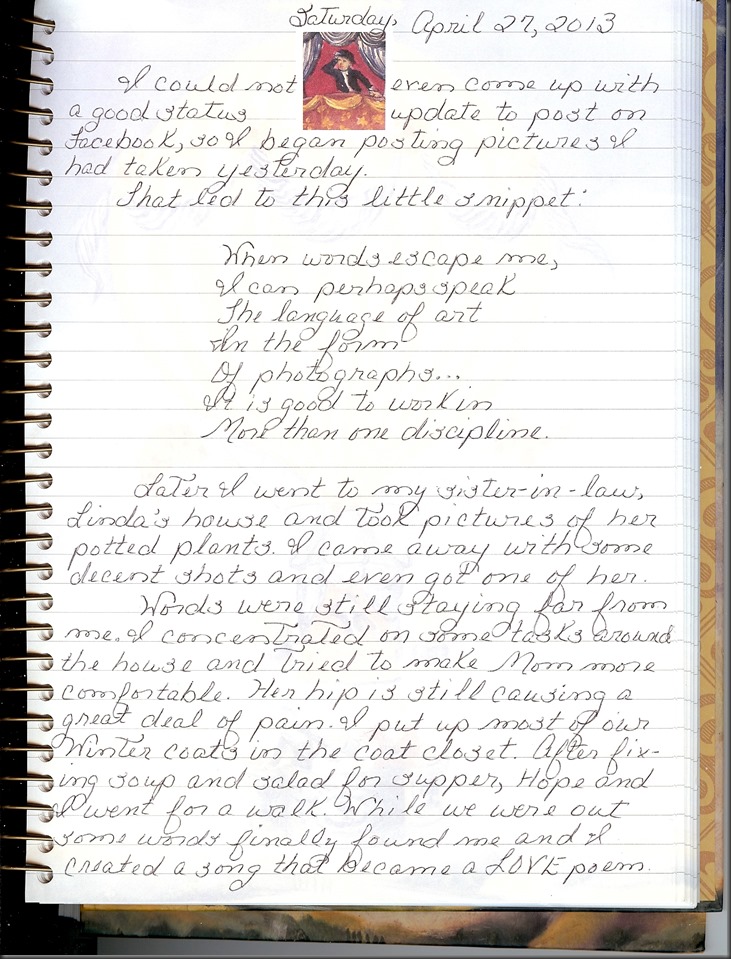 Saturday, April 27, 2013
I could not even come up with
a good status update to post on
Facebook, so I began posting pictures I
had taken yesterday.
That led to this little snippet:
When words escape me,
I can perhaps speak
The language of art
In the form
Of photographs...
It is good to work in
More than one discipline.
Later I went to my sister-in-law,
Linda's house and took pictures of her
potted plants. I came away with some
decent shots and even got one of her.
Words were still staying far from
me. I concentrated on some tasks around
the house and tried to make Mom more
comfortable. Her hip is still causing a
great deal of pain. I put up most of our
Winter coats in the coat closet. After fix-
ing soup and salad for supper, Hope and
I went for a walk. While we were out
some words finally found me and I
created a song that became a LOVE poem.